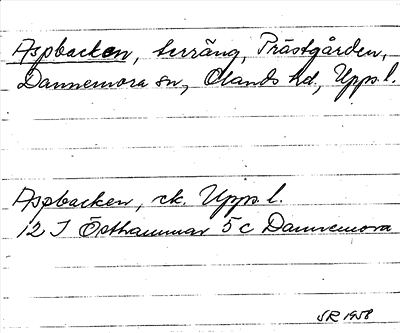 Aspbacken, terräng, Prästgården,
Dannemora sn, Olands hd, Upps. l.
Aspbacken, ek. Upps. l.
12 I Östhammar 5 c Dannemora
SR 1958